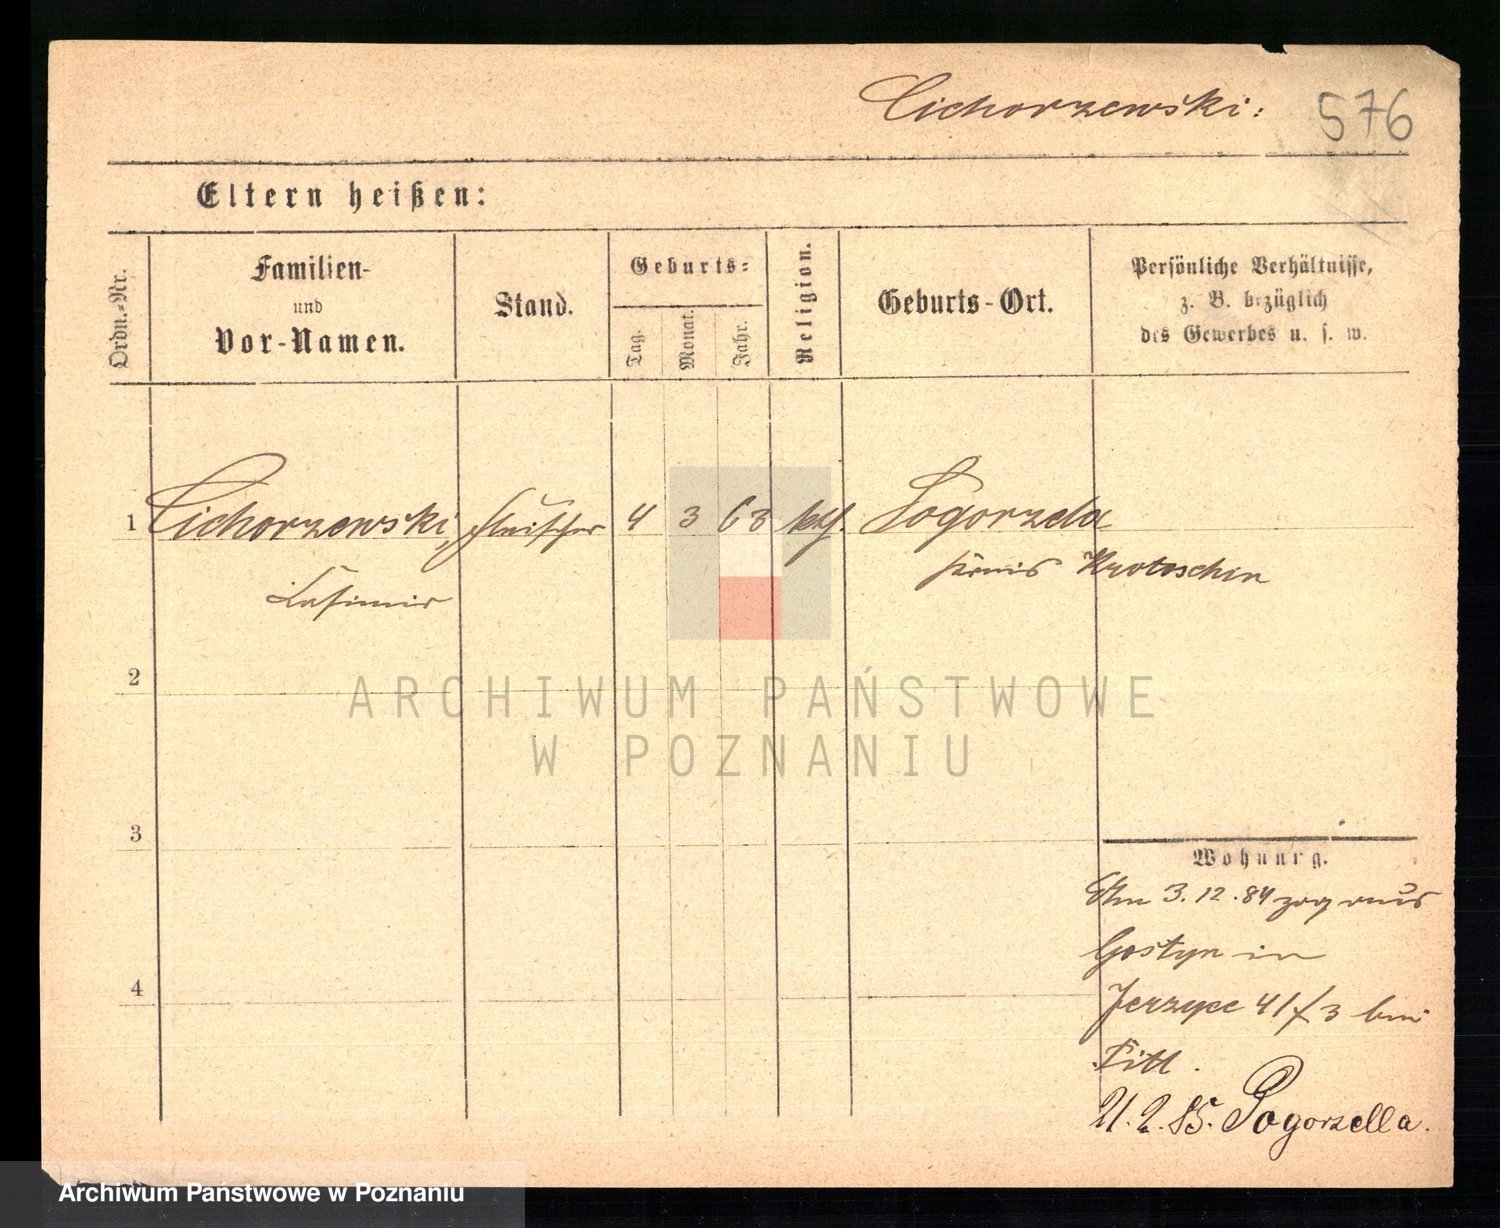 Cichorzewski:
576
Eltern heißen:
Ordn.-Nr.
Familien-
und
Vor-Namen.
Stand.
Geburts-
Tag.
Monat.
Jahr.
Religion.
Geburts-Ort.
Persönliche Verhältnisse,
z. B. bezüglich
des Gewerbes u. s. w.
1 Cichorzewski, Fleischer 4 3 63 kth. Pogorzela
Kasimir
Kreis Krotoschin
2
3
4
Wohnung.
Am 3.12.84 zog aus
Gostyn in
Jerzyce 41/3 bei
Pitt.
21.2.85. Pogorzella.
ARCHIWUM PAŃSTWOWE
W POZNANIU
Archiwum Państwowe w Poznaniu